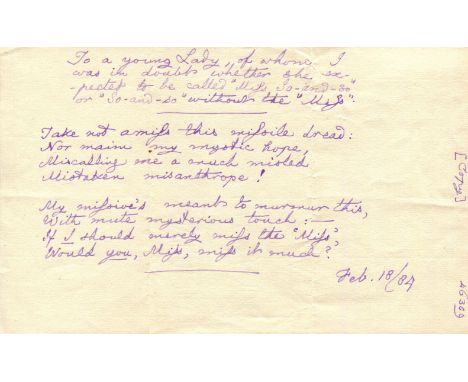 To a young Lady, of whom I
was in doubt whether she ex-
pected to be called "Miss So-and-so"
or "So-and-so" without the "Miss".
Take not amiss this missile dread:
Nor maim my mystic hope,
Miscalling me a much misled
Mistaken misanthrope!
My missive's meant to murmur this,
With mute mysterious touch:—
If I should merely miss the "Miss",
Would you, Miss, miss it much?
Feb. 18/84
[Copy]
46369